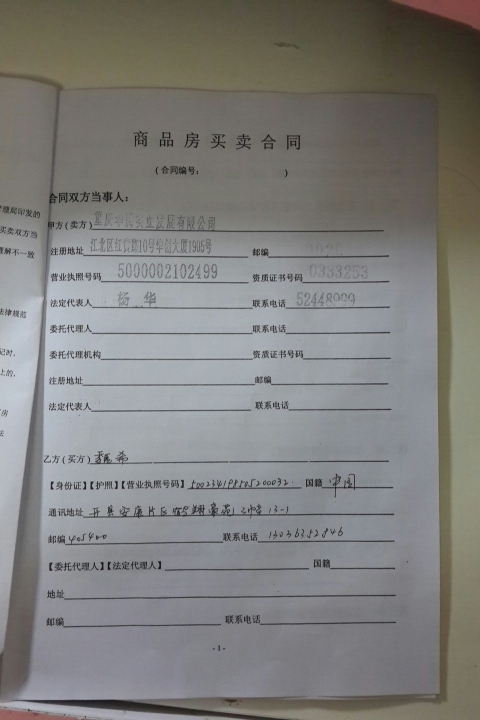 商品房买卖合同
(合同编号: )
合同双方当事人:
理局印发的
甲方(卖方) 发展有限公司
买卖双方当
理解不一致
注册地址 江北区红 10号华创大厦1905号 邮编
营业执照号码 5000002102499 资质证书号码 0333253
法定代表人 杨华 联系电话 52448999
法律规范
委托代理人 联系电话
记时,
委托代理机构 资质证书号码
上的,
注册地址 邮编
法定代表人 联系电话
房
法
乙方(买方) 李 希
【身份证】【护照】【营业执照号码】 500234198505200032 国籍 中国
通讯地址 开县安康片区 翔豪 13-1
邮编 405400 联系电话 13036352846
【委托代理人】【法定代理人】 国籍
地址
邮编 联系电话
- 1 -